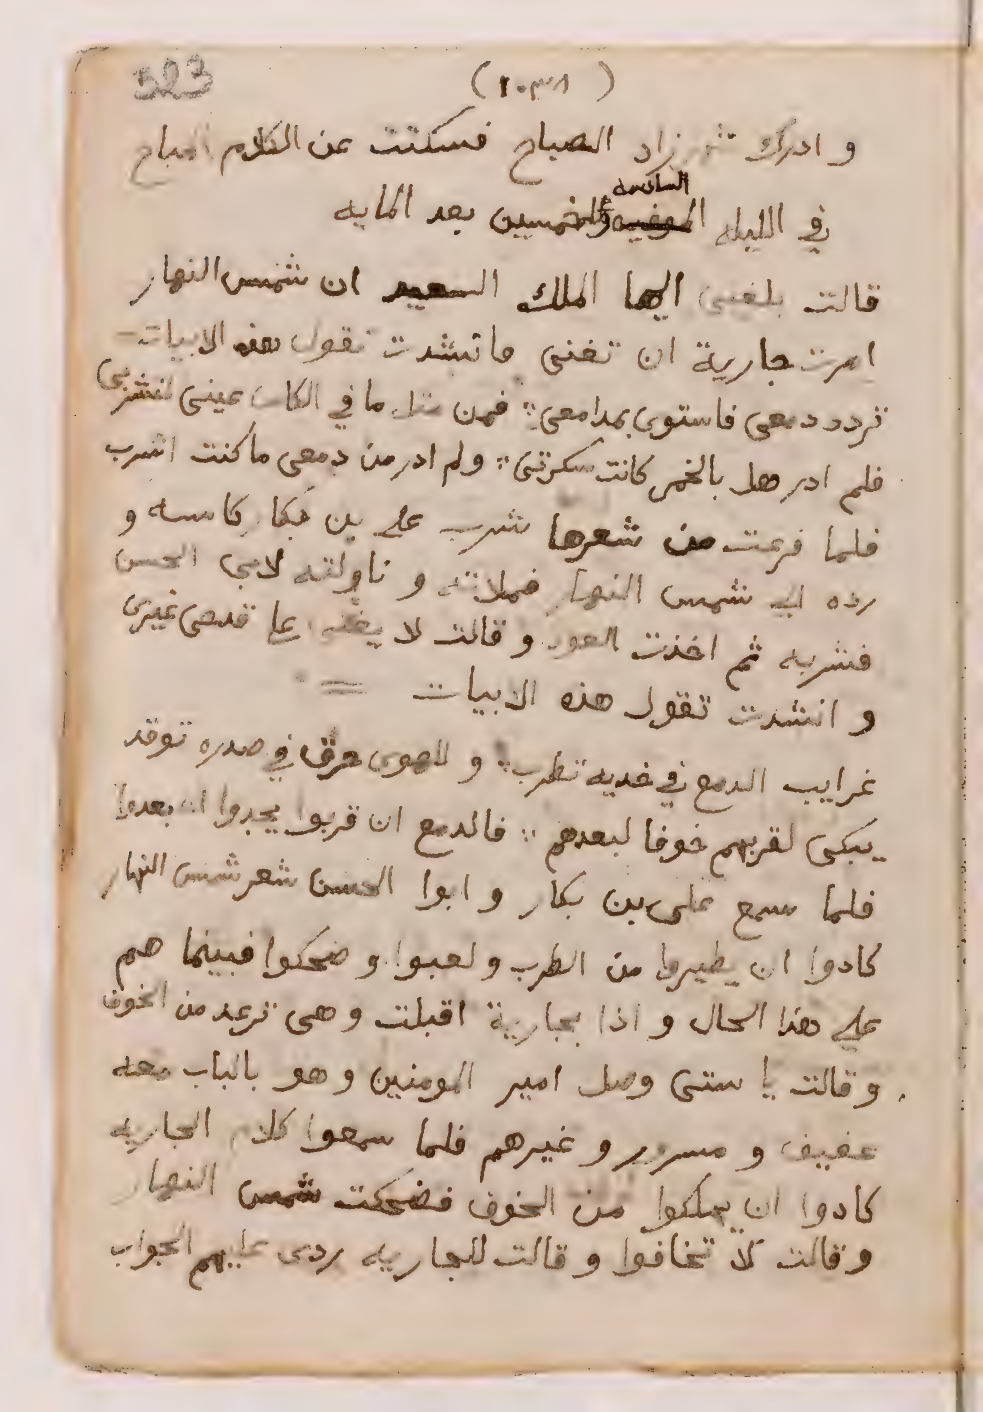 523
(١٠٣٨)
و ادرك شهرزاد الصباح فسكتت عن الكلام المباح
السادسه
في الليله الموفيه والخمسين بعد المايه
قالت بلغنى ايها الملك السعيد ان شمس النهار
امرت جارية ان تغنى فانشدت تقول هذه الابيات
تردد دمعى فاستوى بمدامعى ؞ فمن مثل ما في الكاس عينى تشرب
فلم ادر هل بالخمر كانت سكرتى ؞ ولم ادر من دمعى ما كنت اشرب
فلما فرغت من شعرها شرب على بن بكار كاسه و
رده الى شمس النهار فملاته و ناولته لابى الحسن
فشربه ثم اخذت العود و قالت لا يغنى على قدحى غيرى
و انشدت تقول هذه الابيات =
غرايب الدمع في خديه تطرب ؞ و للهوى حرق في صدره توقد
يبكى لقربهم خوفا لبعدهم ؞ فالدمع ان قربوا يجدوا ان بعدوا
فلما سمع على بن بكار و ابوا الحسن شعر شمس النهار
كادوا ان يطيروا من الطرب و لعبوا و ضحكوا فبينما هم
على هذا الحال و اذا بجارية اقبلت و هى ترعد من الخوف
و قالت يا ستى وصل امير المومنين و هو بالباب معه
عفيف و مسرور و غيرهم فلما سمعوا كلام الجاريه
كادوا ان يهلكوا من الخوف فضحكت شمس النهار
و قالت لا تخافوا و قالت للجاريه ردى عليهم الجواب